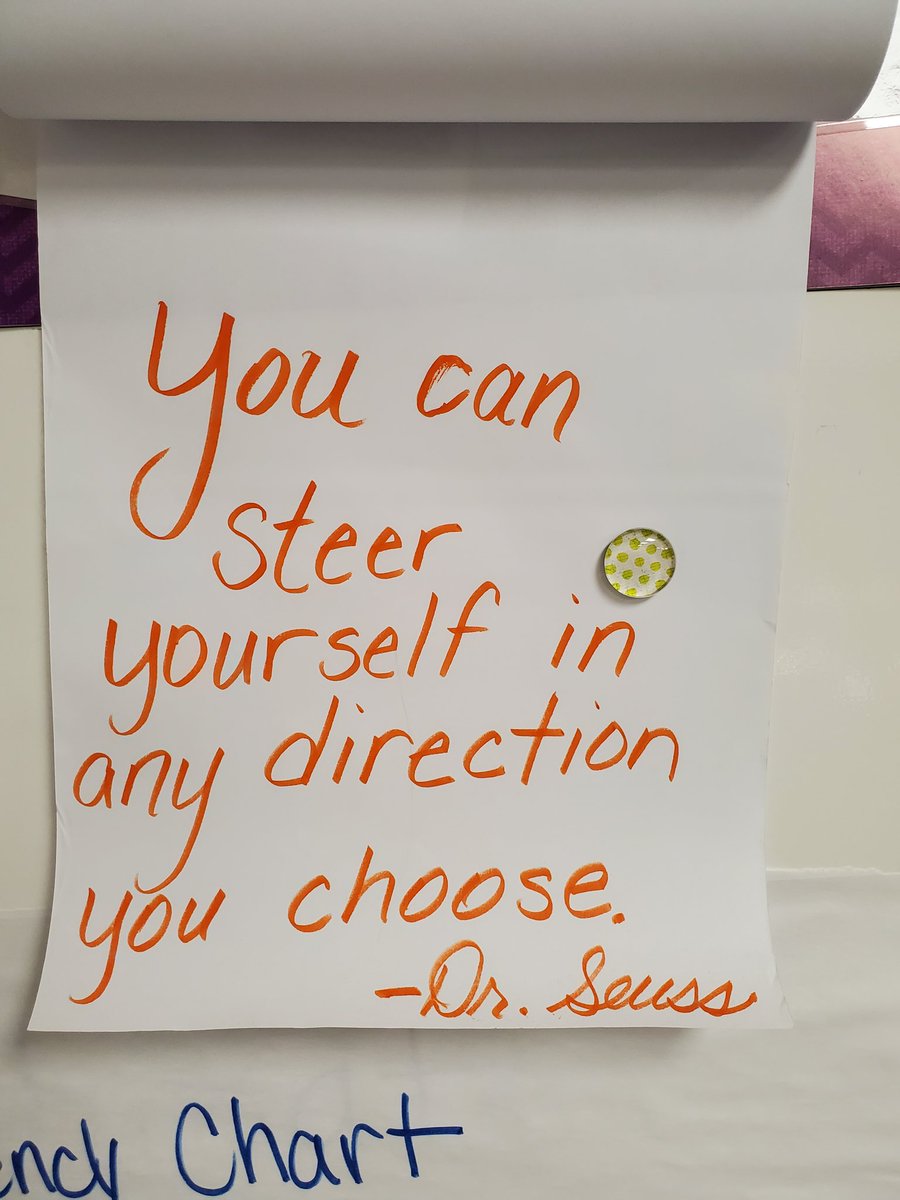 You can
steer
yourself in
any direction
you choose.
-Dr. Seuss
Chart